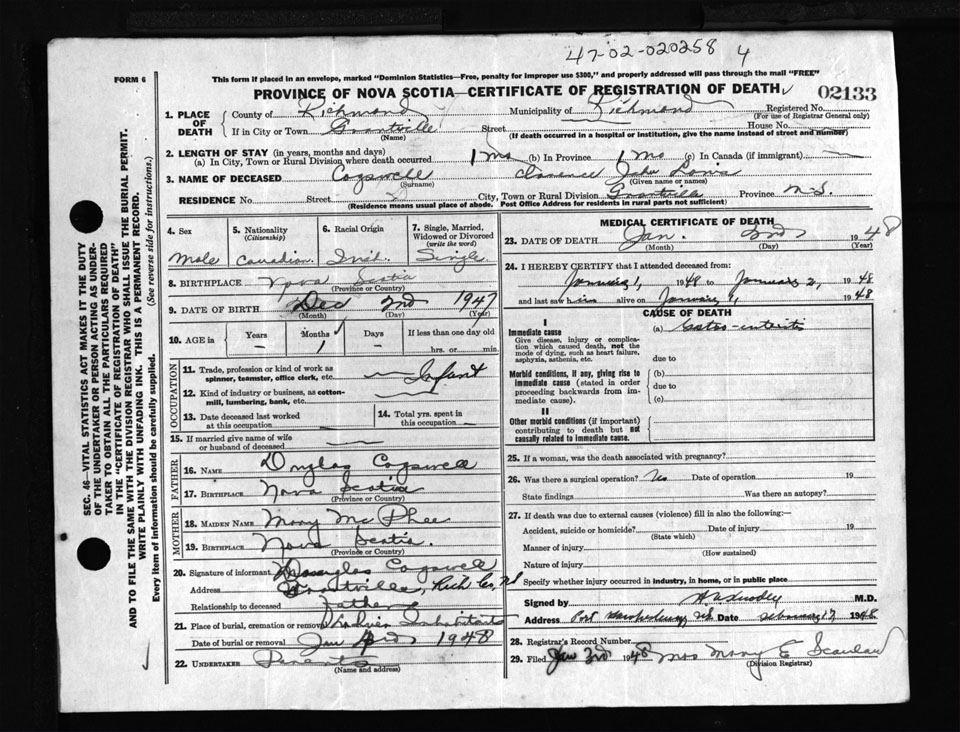 47-02-020258 4
FORM 6
This form if placed in an envelope, marked "Dominion Statistics—Free, penalty for improper use $300," and properly addressed will pass through the mail "FREE"
PROVINCE OF NOVA SCOTIA—CERTIFICATE OF REGISTRATION OF DEATH
02133
1. PLACE OF DEATH
County of Richmond Municipality of Richmond Registered No.
(For use of Registrar General only)
If in City or Town Grantville Street House No.
(Name) (If death occurred in a hospital or institution, give the name instead of street and number)
2. LENGTH OF STAY (in years, months and days)
(a) In City, Town or Rural Division where death occurred 1 mo (b) In Province 1 mo (c) In Canada (if immigrant) —
3. NAME OF DECEASED Cogswell Clarence John
(Surname) (Given name or names)
RESIDENCE No. Street City, Town or Rural Division Grantville Province N.S.
(Residence means usual place of abode. Post Office Address for residents in rural parts not sufficient)
4. Sex
Male
5. Nationality
(Citizenship)
Canadian
6. Racial Origin
Irish
7. Single, Married, Widowed or Divorced
(write the word)
Single
8. BIRTHPLACE Nova Scotia
(Province or Country)
9. DATE OF BIRTH Dec 2nd 1947
(Month) (Day) (Year)
10. AGE in
Years Months Days If less than one day old
— 1 — hrs. or min.
OCCUPATION
11. Trade, profession or kind of work as spinner, teamster, office clerk, etc. Infant
12. Kind of industry or business, as cotton-mill, lumbering, bank, etc.
13. Date deceased last worked at this occupation
14. Total yrs. spent in this occupation
15. If married give name of wife or husband of deceased
FATHER
16. NAME Douglas Cogswell
17. BIRTHPLACE Nova Scotia
(Province or Country)
MOTHER
18. MAIDEN NAME Mary McPhee
19. BIRTHPLACE Nova Scotia.
(Province or Country)
20. Signature of informant Douglas Cogswell
Address Grantville, Rich Co, NS
Relationship to deceased Father
21. Place of burial, cremation or removal Inhabitants
Date of burial or removal Jan 1948
22. UNDERTAKER Parents
(Name and address)
MEDICAL CERTIFICATE OF DEATH
23. DATE OF DEATH Jan. 2nd 1948
(Month) (Day) (Year)
24. I HEREBY CERTIFY that I attended deceased from:
January 1, 1948 to January 2, 1948
and last saw him alive on January 1, 1948
CAUSE OF DEATH
I
Immediate cause
Give disease, injury or complication which caused death, not the mode of dying, such as heart failure, asphyxia, asthenia, etc.
(a) Gastro-enteritis
due to
Morbid conditions, if any, giving rise to immediate cause (stated in order proceeding backwards from immediate cause).
(b)
due to
(c)
II
Other morbid conditions (if important) contributing to death but not causally related to immediate cause.
25. If a woman, was the death associated with pregnancy?
26. Was there a surgical operation? No Date of operation 19
State findings Was there an autopsy?
27. If death was due to external causes (violence) fill in also the following:—
Accident, suicide or homicide? Date of injury 19
(State which)
Manner of injury
(How sustained)
Nature of injury
Specify whether injury occurred in industry, in home, or in public place
Signed by M.D.
Address Port Hawkesbury NS Date 1948
28. Registrar's Record Number
29. Filed Jan 3rd 1948 Mrs Mary E Scanlan
(Division Registrar)
SEC. 46—VITAL STATISTICS ACT MAKES IT THE DUTY
OF THE UNDERTAKER OR PERSON ACTING AS UNDER-
TAKER TO OBTAIN ALL THE PARTICULARS REQUIRED
IN THE "CERTIFICATE OF REGISTRATION OF DEATH"
AND TO FILE THE SAME WITH THE DIVISION REGISTRAR WHO SHALL ISSUE THE BURIAL PERMIT.
WRITE PLAINLY WITH UNFADING INK. THIS IS A PERMANENT RECORD.
Every item of information should be carefully supplied. (See reverse side for instructions.)